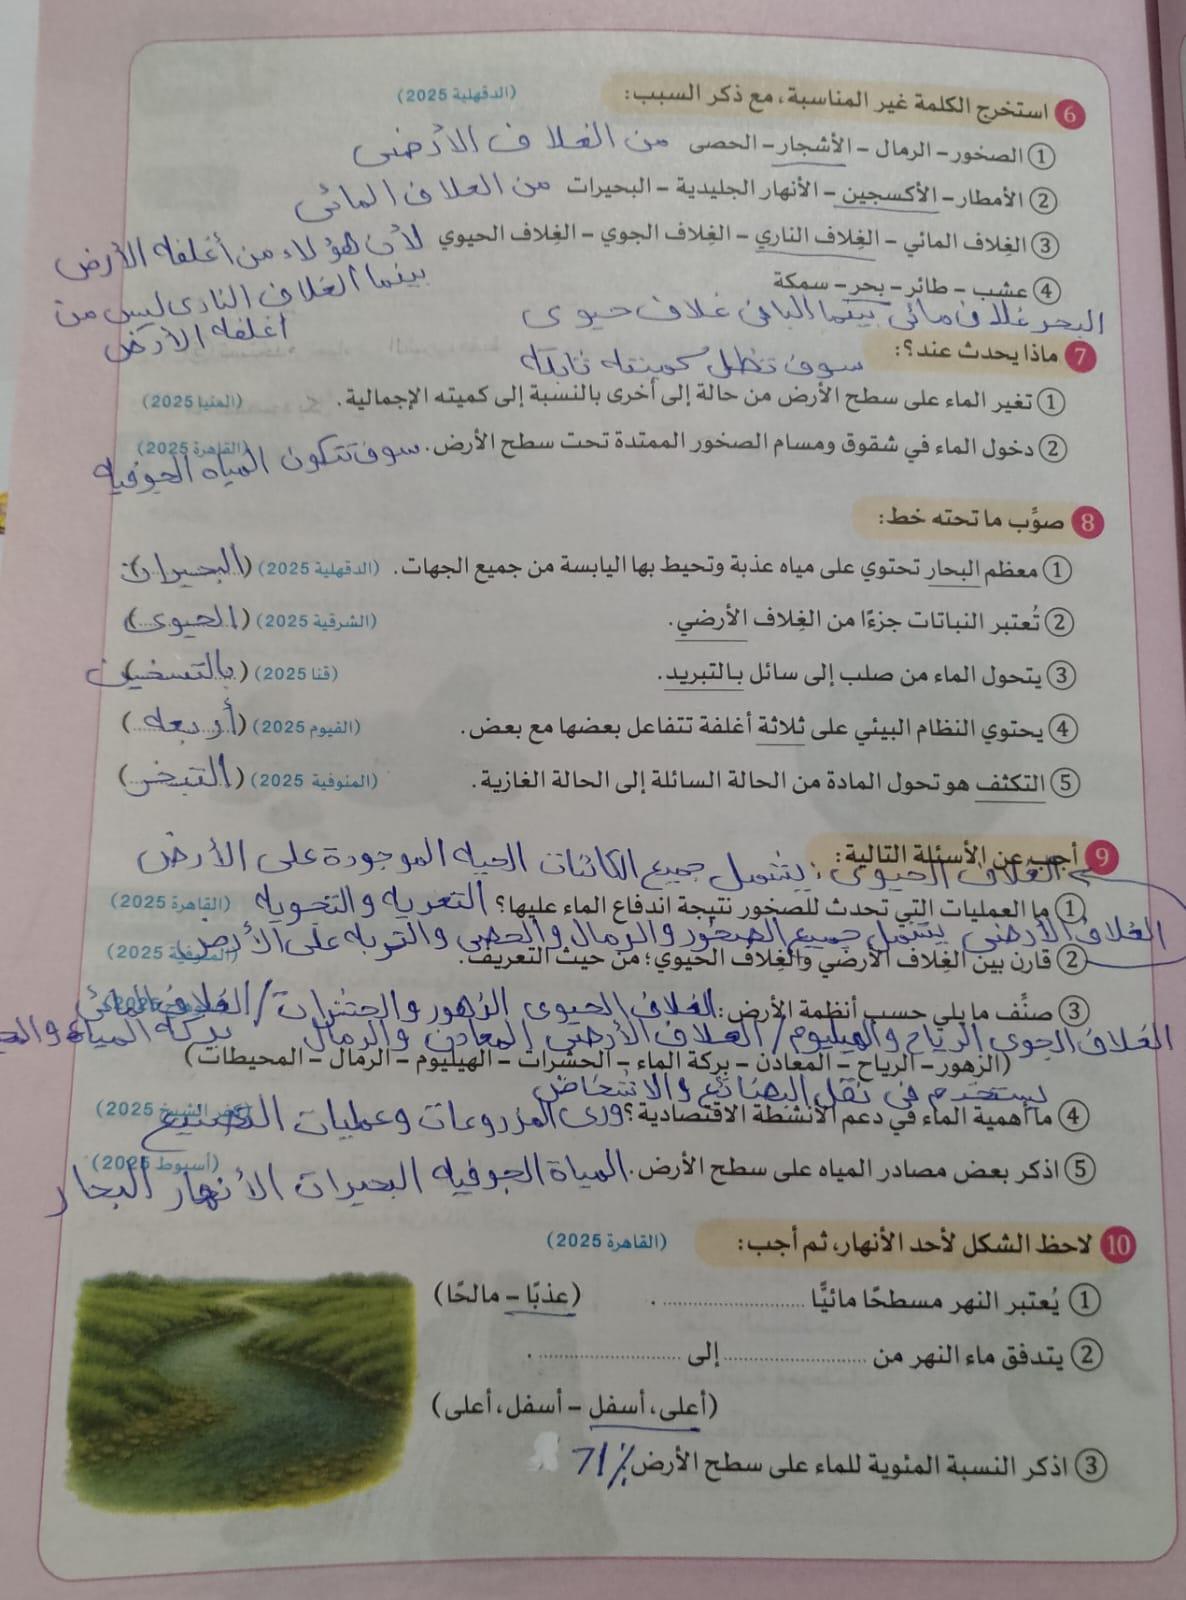 6 استخرج الكلمة غير المناسبة، مع ذكر السبب: (الدقهلية 2025)
1 الصخور – الرمال – الأشجار – الحصى من الغلاف الأرضى
2 الأمطار – الأكسجين – الأنهار الجليدية – البحيرات من الغلاف المائى
3 الغِلاف المائي – الغِلاف الناري – الغِلاف الجوي – الغِلاف الحيوي لأن هؤلاء من أغلفه الأرض
بينما الغلاف النارى ليس من
اغلفه الأرض
4 عشب – طائر – بحر – سمكة
البحر غلاف مائى بينما الباقى غلاف حيوى
7 ماذا يحدث عند؟:
سوف تظل كميته ثابته
1 تغير الماء على سطح الأرض من حالة إلى أخرى بالنسبة إلى كميته الإجمالية. (المنيا 2025)
2 دخول الماء في شقوق ومسام الصخور الممتدة تحت سطح الأرض. (القاهرة 2025)
سوف تتكون المياه الجوفيه
8 صوِّب ما تحته خط:
1 معظم البحار تحتوي على مياه عذبة وتحيط بها اليابسة من جميع الجهات. (الدقهلية 2025) (البحيرات)
2 تُعتبر النباتات جزءًا من الغِلاف الأرضي. (الشرقية 2025) (الحيوى)
3 يتحول الماء من صلب إلى سائل بالتبريد. (قنا 2025) (بالتسخين)
4 يحتوي النظام البيئي على ثلاثة أغلفة تتفاعل بعضها مع بعض. (الفيوم 2025) (أربعه)
5 التكثف هو تحول المادة من الحالة السائلة إلى الحالة الغازية. (المنوفية 2025) (التبخر)
9 أجب عن الأسئلة التالية:
الغلاف الحيوى: يشمل جميع الكائنات الحيه الموجودة على الأرض
1 ما العمليات التي تحدث للصخور نتيجة اندفاع الماء عليها؟ (القاهرة 2025)
التعريه والتجويه
الغلاف الأرضى يشمل جميع الصخور والرمال والحصى والتربه على الأرض
2 قارن بين الغِلاف الأرضي والغِلاف الحيوي؛ من حيث التعريف. (المنوفية 2025)
3 صنِّف ما يلي حسب أنظمة الأرض:
الغلاف الحيوى الزهور والحشرات / الغلاف المائى
بركه المياه
الغلاف الجوى الرياح والهيليوم / الغلاف الأرضى المعادن والرمال
(الزهور – الرياح – المعادن – بركة الماء – الحشرات – الهيليوم – الرمال – المحيطات)
يستخدم فى نقل البضائع والاشخاص
4 ما أهمية الماء في دعم الأنشطة الاقتصادية؟ (كفر الشيخ 2025)
ورى المزروعات وعمليات التصنيع
5 اذكر بعض مصادر المياه على سطح الأرض. (أسيوط 2025)
المياة الجوفيه البحيرات الأنهار البحار
10 لاحظ الشكل لأحد الأنهار، ثم أجب: (القاهرة 2025)
1 يُعتبر النهر مسطحًا مائيًّا .................... . (عذبًا – مالحًا)
2 يتدفق ماء النهر من .................... إلى .................... .
(أعلى، أسفل – أسفل، أعلى)
3 اذكر النسبة المئوية للماء على سطح الأرض. 71%